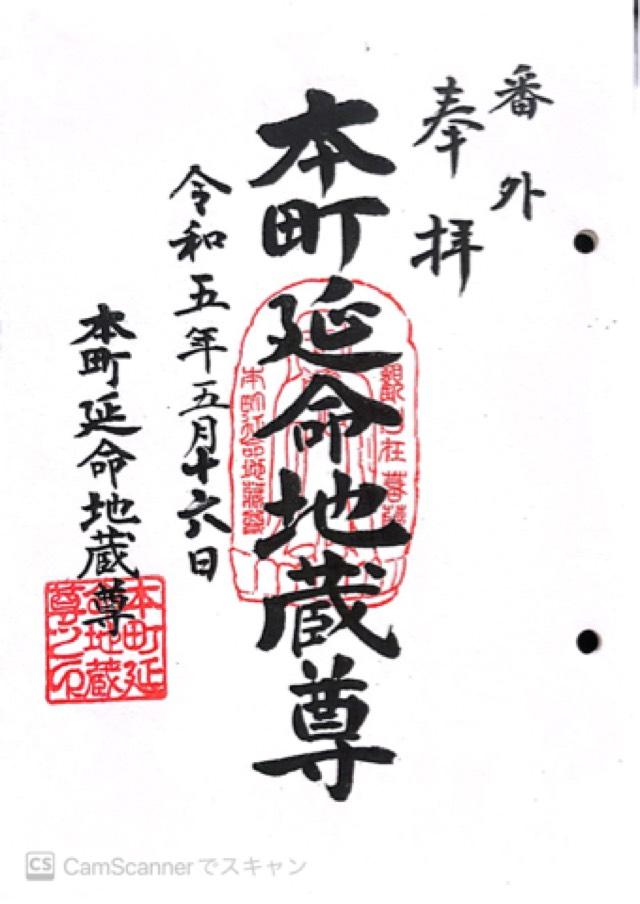 番外
奉拝
本町延命地蔵尊
令和五年五月十六日
本町延命地蔵尊
本町延命地蔵尊
観自在菩薩
本町延
命地蔵
尊之印
CS CamScannerでスキャン